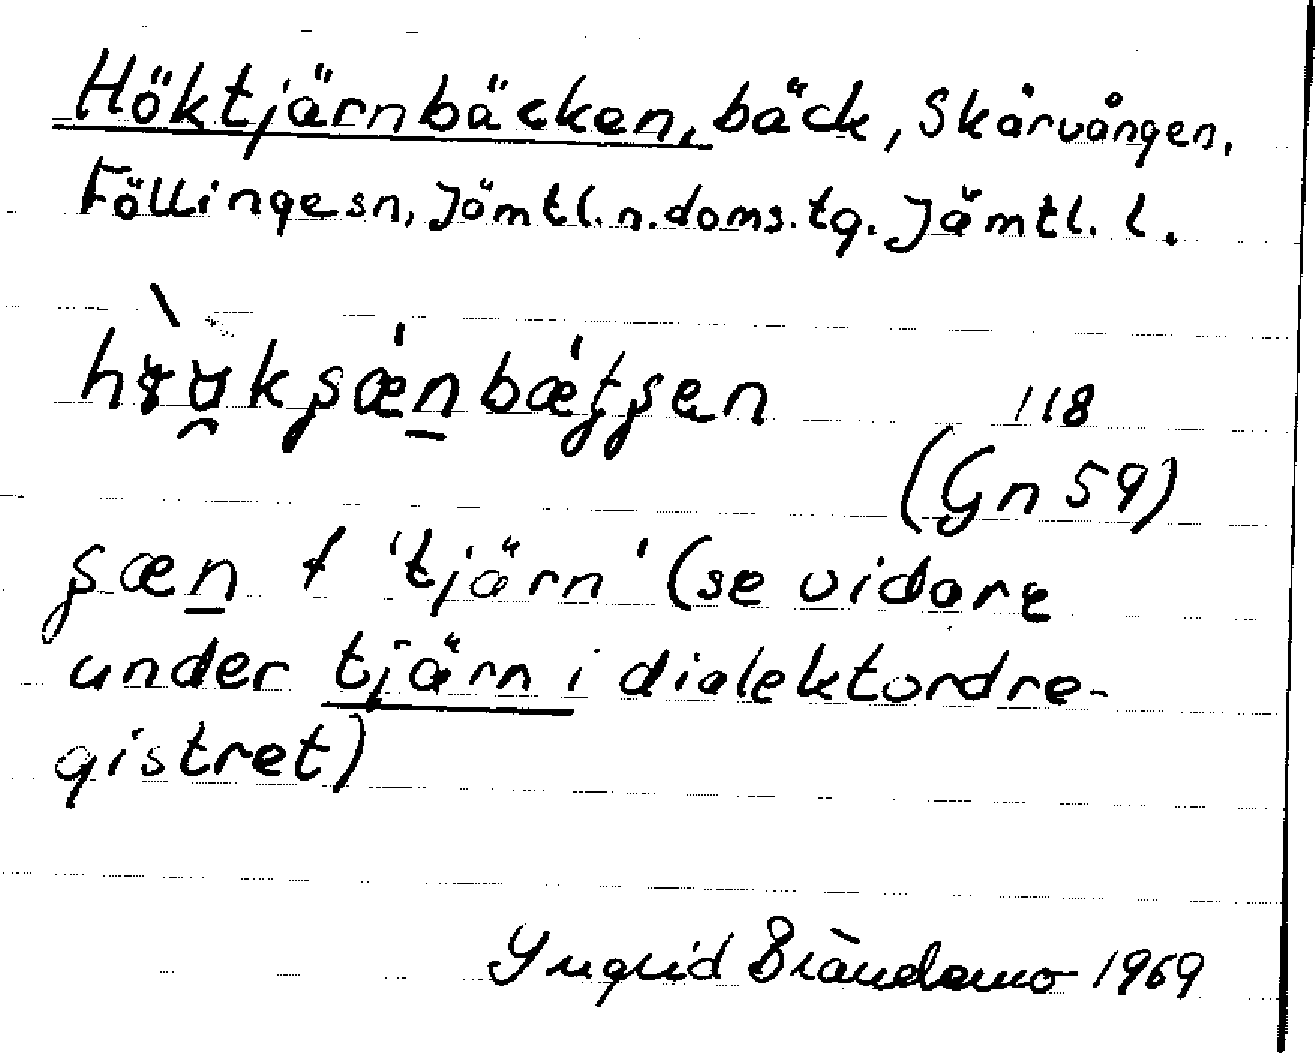 Höktjärnbäcken, bäck, Skärvången,
Föllingesn, Jämtl. n. doms. tg. Jämtl. l.
118
(Gn 59)
f 'tjärn' (se vidare
under tjärn i dialektordre-
gistret)
Yngrid Brändemo 1969